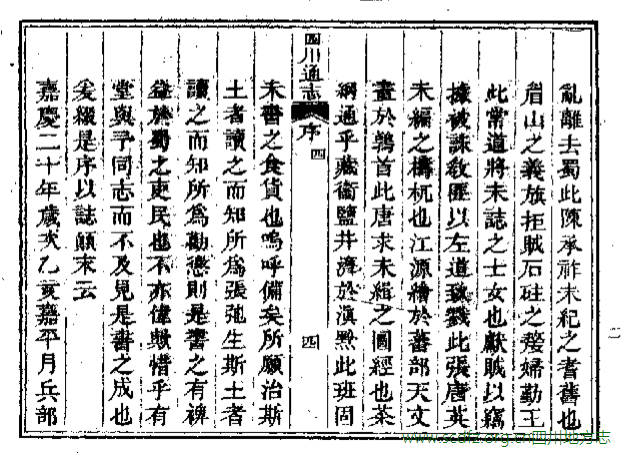 亂離去蜀此陳承祚未紀之耆舊也
眉山之義旅拒賊石砫之嫠婦勤王
此常道將未誌之士女也獻賊以竊
據被誅敎匪以左道致戮此張唐英
未編之檮杌也江源繪於蕃部天文
畫於鶉首此唐求未緝之圖經也茶
綱通乎藏衛鹽井濟於滇黔此班固
四川通志 序 四
四
未書之食貨也嗚呼備矣所願治斯
土者讀之而知所爲張弛生斯土者
讀之而知所爲勸懲則是書之有裨
益於蜀之吏民也不亦偉歟惜乎有
堂與予同志而不及見是書之成也
爰綴是序以誌顛末云
嘉慶二十年歲次乙亥嘉平月兵部
二
www.scdfz.org.cn四川地方志